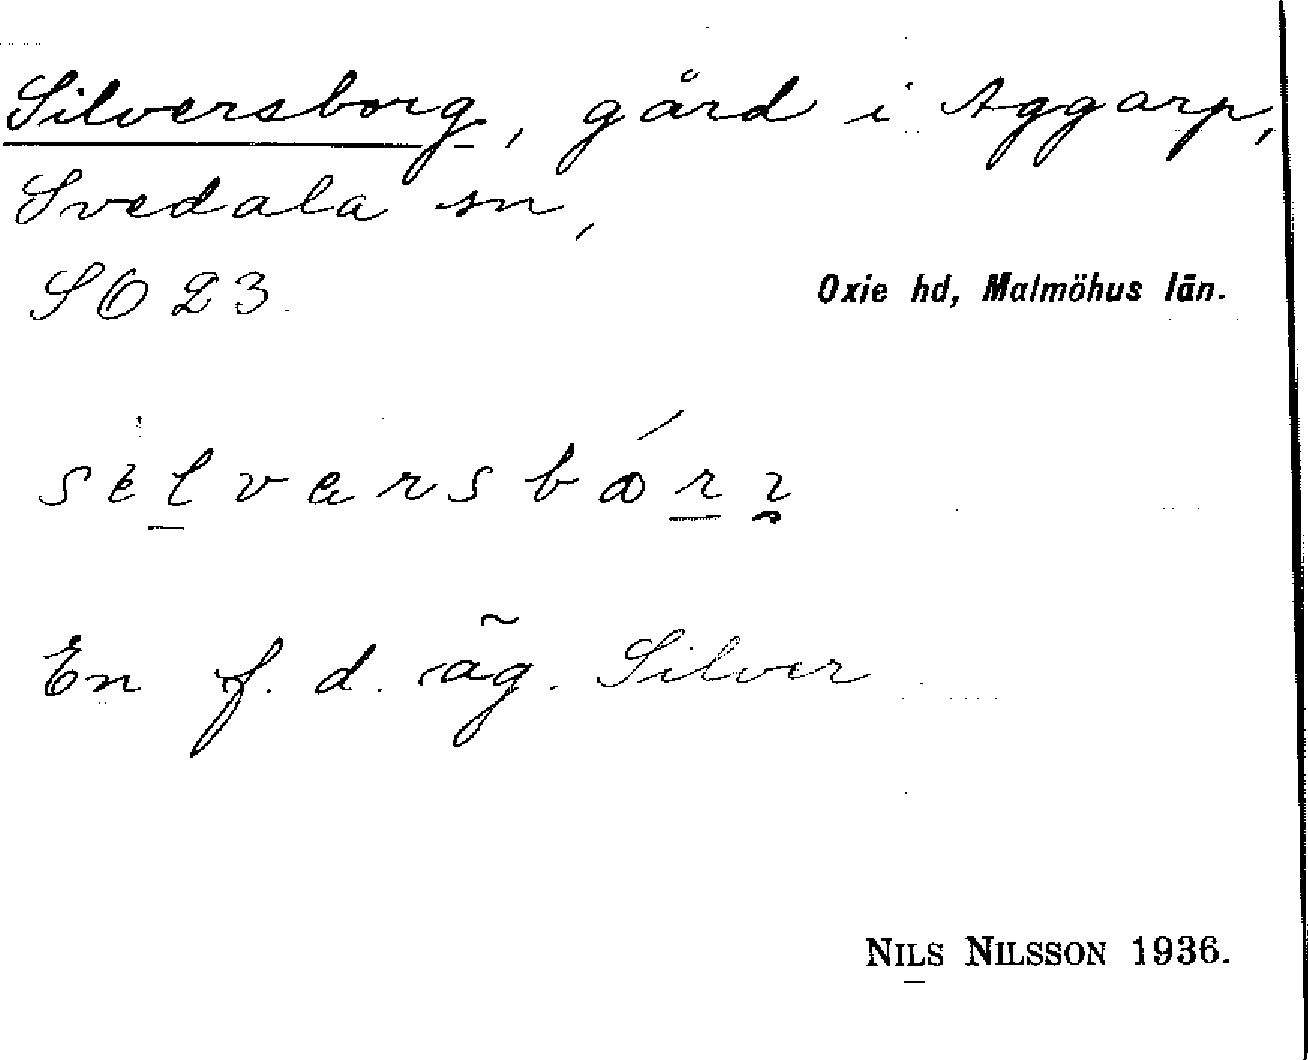 Silversborg, gård i Aggarp,
Svedala sn,
SO 23.
Oxie hd, Malmöhus län.
En f. d. äg. Silver
NILS NILSSON 1936.